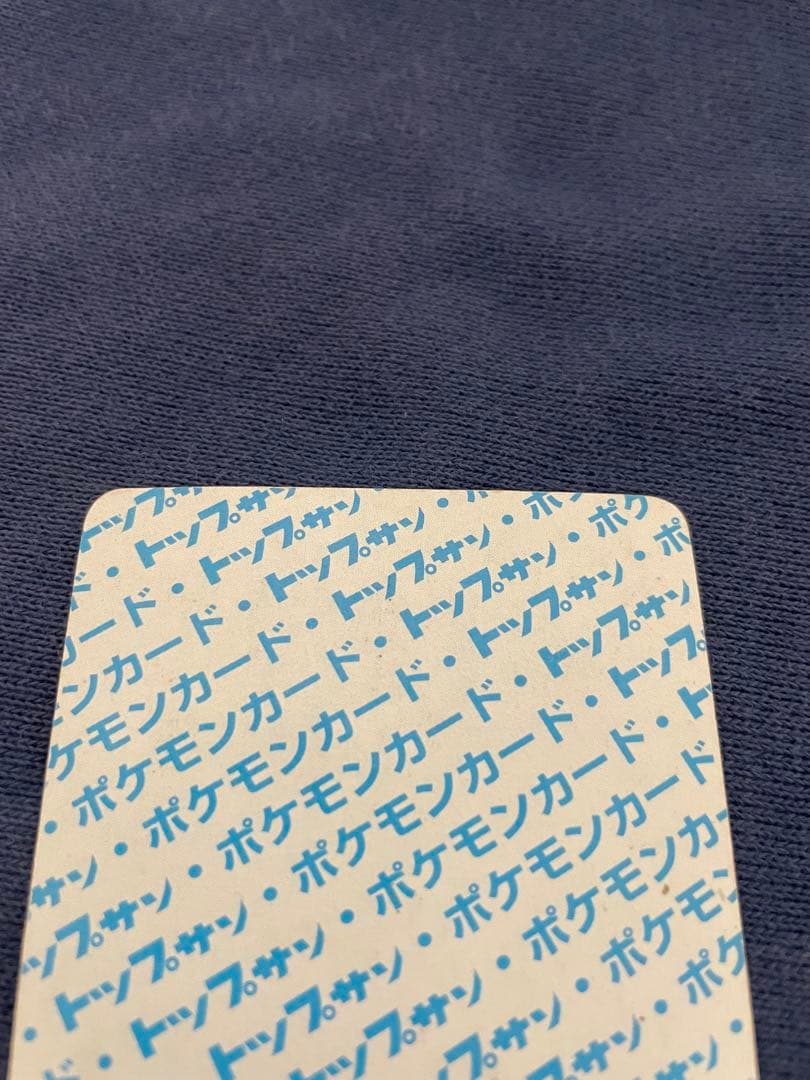 トップサン
トップサン
ド・トップサン
カード・トップサン・
ンカード・トップサン・ポ
ケモンカード・トップサン・ポケ
・ポケモンカード・トップサン・ポ
・ポケモンカード・トップサン
サン・ポケモンカード・トップ
トップサン・ポケモンカード・ト
・トップサン・ポケモンカード
・トップサン・ポケモンカー
トップサン・ポケモン
トップサン・ポケ
トップサン・